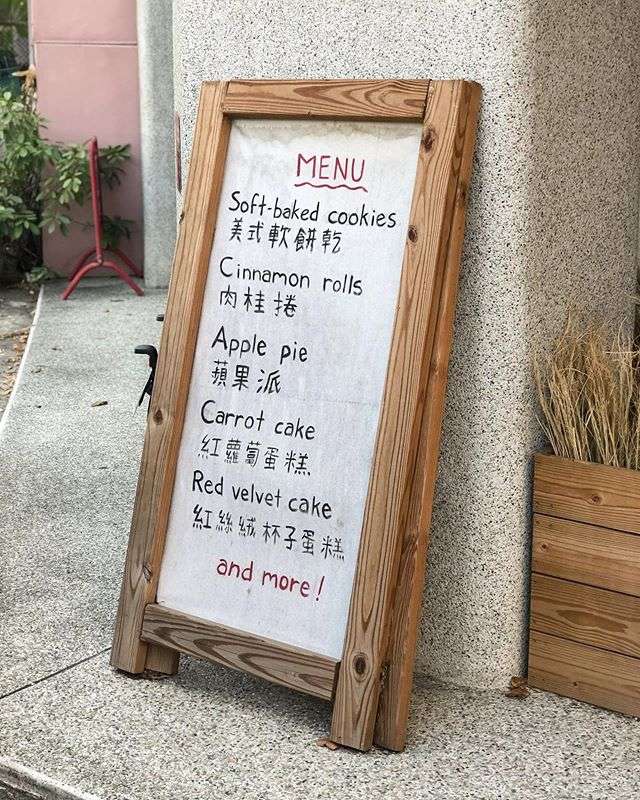 MENU
Soft-baked cookies
美式軟餅乾
Cinnamon rolls
肉桂捲
Apple pie
蘋果派
Carrot cake
紅蘿蔔蛋糕
Red velvet cake
紅絲絨杯子蛋糕
and more!